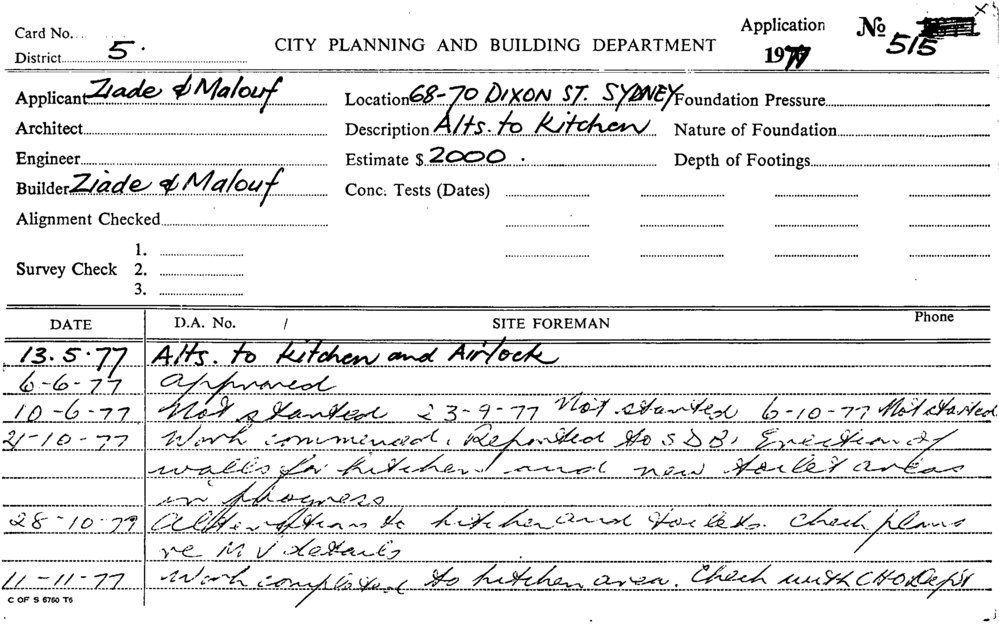 Card No.
District 5.
CITY PLANNING AND BUILDING DEPARTMENT
Application No
1977 515
Applicant Ziade & Malouf
Location 68-70 DIXON ST. SYDNEY
Foundation Pressure
Architect
Description Alts. to Kitchen
Nature of Foundation
Engineer
Estimate $ 2000.
Depth of Footings
Builder Ziade & Malouf
Conc. Tests (Dates)
Alignment Checked
Survey Check
1.
2.
3.
DATE D.A. No. / SITE FOREMAN Phone
13.5.77 Alts. to kitchen and Airlock
6-6-77 Approved
10-6-77 Not started 23-9-77 Not started 6-10-77 Not started
21-10-77 Work commenced. Reported to SDB. Erection of
walls for kitchen and new toilet areas
in progress
28-10-77 Alterations to kitchen and toilets. Check plans
re M V details
11-11-77 Work completed to kitchen area. Check with CHO Dept
C OF S 6760 T6